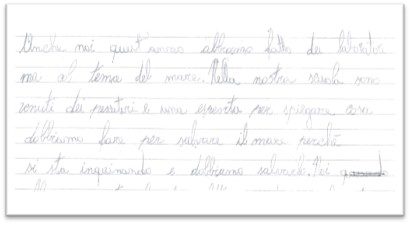 Anche noi quest'anno abbiamo fatto dei laboratori
ma al tema del mare. Nella nostra scuola sono
venuti dei genitori e una esperta per spiegare cosa
dobbiamo fare per salvare il mare perché
si sta inquinando e dobbiamo salvarlo. Poi